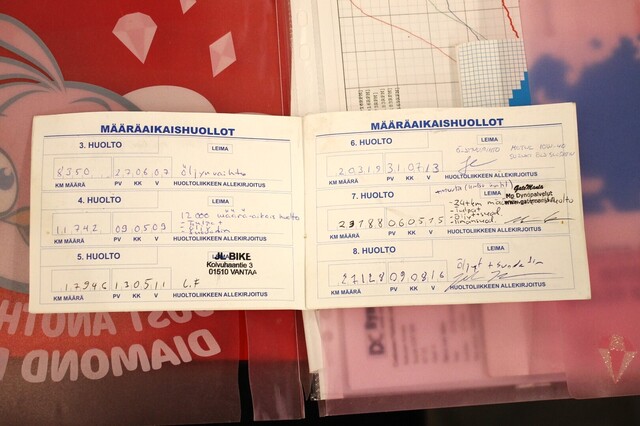 MÄÄRÄAIKAISHUOLLOT
3. HUOLTO
LEIMA
8350 27.06.07 Öljynvaihto
KM MÄÄRÄ PV KK V HUOLTOLIIKKEEN ALLEKIRJOITUS
4. HUOLTO
LEIMA
12 000 määräaikaishuolto
11.742 09.05.09
KM MÄÄRÄ PV KK V HUOLTOLIIKKEEN ALLEKIRJOITUS
5. HUOLTO
LEIMA
JL BIKE
Koivuhaantie 3
01510 VANTAA
17946 12.05.11 L.F
KM MÄÄRÄ PV KK V HUOLTOLIIKKEEN ALLEKIRJOITUS
MÄÄRÄAIKAISHUOLLOT
6. HUOLTO
LEIMA
20318 31.07.13
KM MÄÄRÄ PV KK V HUOLTOLIIKKEEN ALLEKIRJOITUS
7. HUOLTO
LEIMA
GateMania
Mp Dynopalvelut
24tkm
23188 06.05.15
KM MÄÄRÄ PV KK V HUOLTOLIIKKEEN ALLEKIRJOITUS
8. HUOLTO
LEIMA
Öljyt + suodatin
27128 09.08.16
KM MÄÄRÄ PV KK V HUOLTOLIIKKEEN ALLEKIRJOITUS
JUST ANOTH
DIAMOND